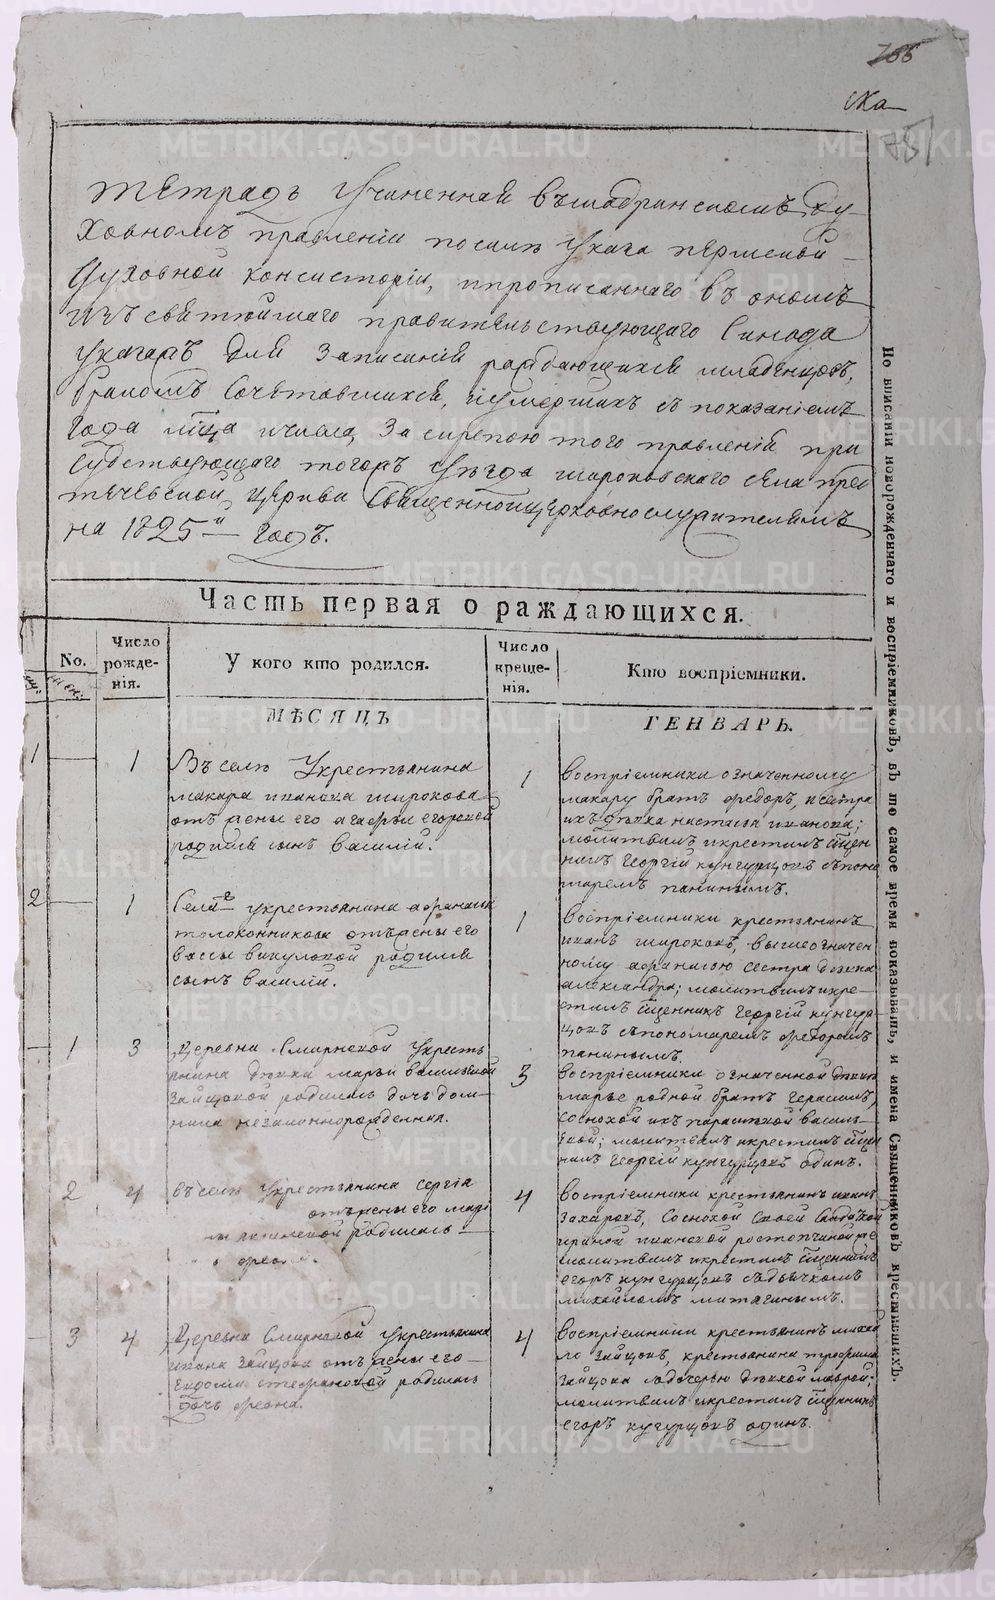 ска
Тетрадь учиненная въ шадринскомъ ду-
ховномъ правленіи посилѣ указа пермской
духовной консисторіи, ипрописаннаго въ ономъ
изъ святѣйшаго правительствующаго Синода
указахъ для записанія раждающихся младенцовъ,
бракомъ сочетавшихся, иумершихъ съ показаніемъ
года мца ичисла, за скрепою того правленія при
судствующаго тогожъ уѣзда широковскаго села пред
течевской церкви священноицерковнослужителямъ
на 1825й годъ.
Часть первая о раждающихся.
No.
Число
рожде-
нія.
У кого кто родился.
Число
креще-
нія.
Кто воспріемники.
МѢСЯЦЪ
ГЕНВАРЬ.
1
1
Въ селѣ укрестьянина
макара иванова широкова
отъ жены его агафьи егоровой
родился сынъ василій.
1
воспріемники означенному
макару братъ федоръ, и сестра
ихъ дѣвка настасья иванова;
молитвилъ икрестилъ сщен
никъ георгій кунгурцовъ съ поно
маремъ панинымъ.
2
1
Села укрестьянина афанасья
толоконникова отъ жены его
вассы викуловой родился
сынъ василій.
1
воспріемники крестьянинъ
иванъ широковъ, вышеозначен
ному афанасью сестра дѣвка
александра; молитвилъ икре-
стилъ сщенникъ георгій кунгур
цовъ съ пономаремъ федоромъ
панинымъ.
1
3
Деревни Смирновой укресть
янина дѣвки марьи васильевой
зайцовой родилась дочь дом-
ника незаконнорожденная.
3
воспріемники означенной дѣвки
марье родной братъ герасимъ,
сосновой ихъ парасковой василь-
евой; молитвилъ икрестилъ сщен
никъ георгій кунгурцовъ одинъ.
2
4
въ селѣ укрестьянина сергія
отъ жены его марі
родилась
4
воспріемники крестьянинъ иванъ
захаровъ, сосновой своей
ириной ивановой
молитвилъ икрестилъ сщенникъ
егоръ кунгурцовъ съ дьячкомъ
михайломъ митягинымъ.
3
4
Деревни Смирновой укрестьянина
ивана зайцова отъ жены его
евдокіи стефановой родилась
дочь феона.
4
воспріемники крестьянинъ михай
ло зайцовъ, крестьянина трофима
зайцова сдочерью дѣвкой маврой;
молитвилъ икрестилъ сщенникъ
егоръ кугурцовъ одинъ.
По вписаніи новорожденнаго и воспріемниковъ, въ то самое время показывать, и имена Священниковъ крестившихъ.
METRIKI.GASO-URAL.RU